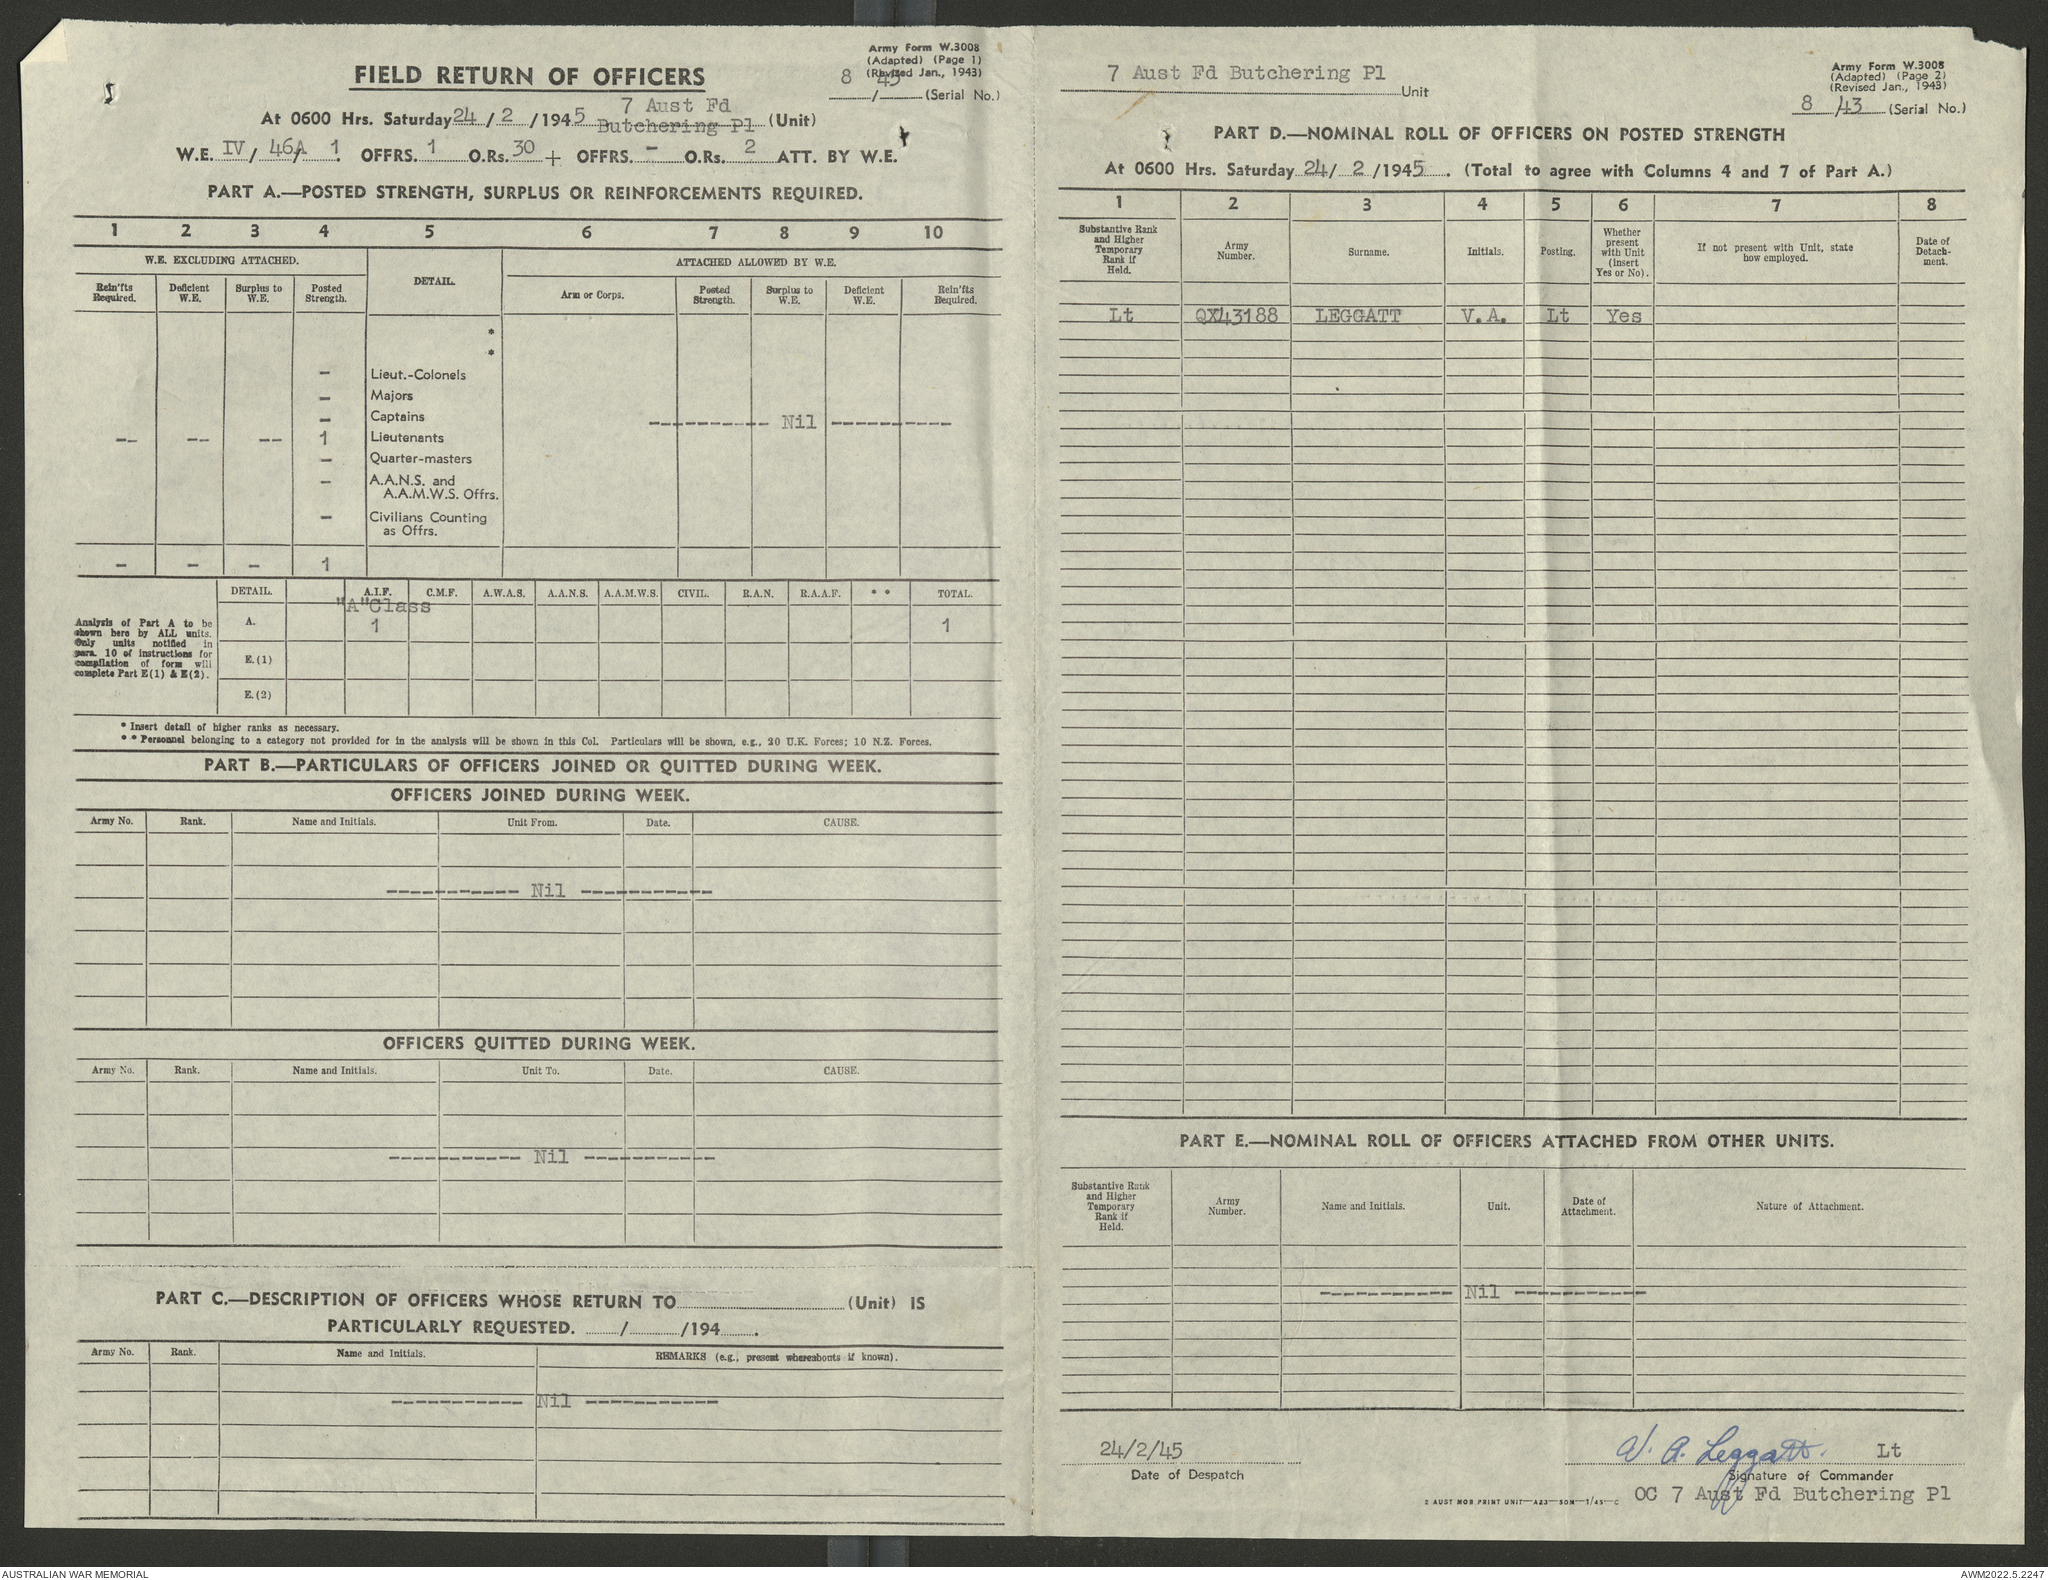 Army Form W.3008
(Adapted) (Page 1)
(Revised Jan., 1943)
8 / 43 (Serial No.)
FIELD RETURN OF OFFICERS
At 0600 Hrs. Saturday 24 / 2 / 1945 7 Aust Fd Butchering Pl (Unit)
W.E. IV / 46A / 1 OFFRS. 1 O.Rs. 30 + OFFRS. - O.Rs. 2 ATT. BY W.E.
PART A.—POSTED STRENGTH, SURPLUS OR REINFORCEMENTS REQUIRED.
1 2 3 4 5 6 7 8 9 10
W.E. EXCLUDING ATTACHED. DETAIL. ATTACHED ALLOWED BY W.E.
Rein'fts Required. Deficient W.E. Surplus to W.E. Posted Strength. Arm or Corps. Posted Strength. Surplus to W.E. Deficient W.E. Rein'fts Required.
*
*
- Lieut.-Colonels
- Majors
- Captains
---------- Nil ----------
-- -- -- 1 Lieutenants
- Quarter-masters
- A.A.N.S. and
A.A.M.W.S. Offrs.
- Civilians Counting
as Offrs.
- - - 1
DETAIL. A.I.F. C.M.F. A.W.A.S. A.A.N.S. A.A.M.W.S. CIVIL. R.A.N. R.A.A.F. * * TOTAL.
"A"Class
A. 1 1
E.(1)
E.(2)
Analysis of Part A to be
shown here by ALL units.
Only units notified in
para. 10 of instructions for
compilation of form will
complete Part E(1) & E(2).
* Insert detail of higher ranks as necessary.
* * Personnel belonging to a category not provided for in the analysis will be shown in this Col. Particulars will be shown, e.g., 20 U.K. Forces; 10 N.Z. Forces.
PART B.—PARTICULARS OF OFFICERS JOINED OR QUITTED DURING WEEK.
OFFICERS JOINED DURING WEEK.
Army No. Rank. Name and Initials. Unit From. Date. CAUSE.
----------- Nil -----------
OFFICERS QUITTED DURING WEEK.
Army No. Rank. Name and Initials. Unit To. Date. CAUSE.
----------- Nil -----------
PART C.—DESCRIPTION OF OFFICERS WHOSE RETURN TO (Unit) IS
PARTICULARLY REQUESTED. / /194 .
Army No. Rank. Name and Initials. REMARKS (e.g., present whereabouts if known).
----------- Nil -----------
7 Aust Fd Butchering Pl Unit
Army Form W.3008
(Adapted) (Page 2)
(Revised Jan., 1943)
8 / 43 (Serial No.)
PART D.—NOMINAL ROLL OF OFFICERS ON POSTED STRENGTH
At 0600 Hrs. Saturday 24/ 2 /1945 . (Total to agree with Columns 4 and 7 of Part A.)
1 2 3 4 5 6 7 8
Substantive Rank and Higher Temporary Rank if Held. Army Number. Surname. Initials. Posting. Whether present with Unit (Insert Yes or No). If not present with Unit, state how employed. Date of Detach-ment.
Lt QX43188 LEGGATT V.A. Lt Yes
PART E.—NOMINAL ROLL OF OFFICERS ATTACHED FROM OTHER UNITS.
Substantive Rank and Higher Temporary Rank if Held. Army Number. Name and Initials. Unit. Date of Attachment. Nature of Attachment.
----------- Nil -----------
24/2/45
Date of Despatch
V. A. Leggatt. Lt
Signature of Commander
OC 7 Aust Fd Butchering Pl
2 AUST MOB PRINT UNIT—A23—50M—1/45—C
AUSTRALIAN WAR MEMORIAL
AWM2022.5.2247